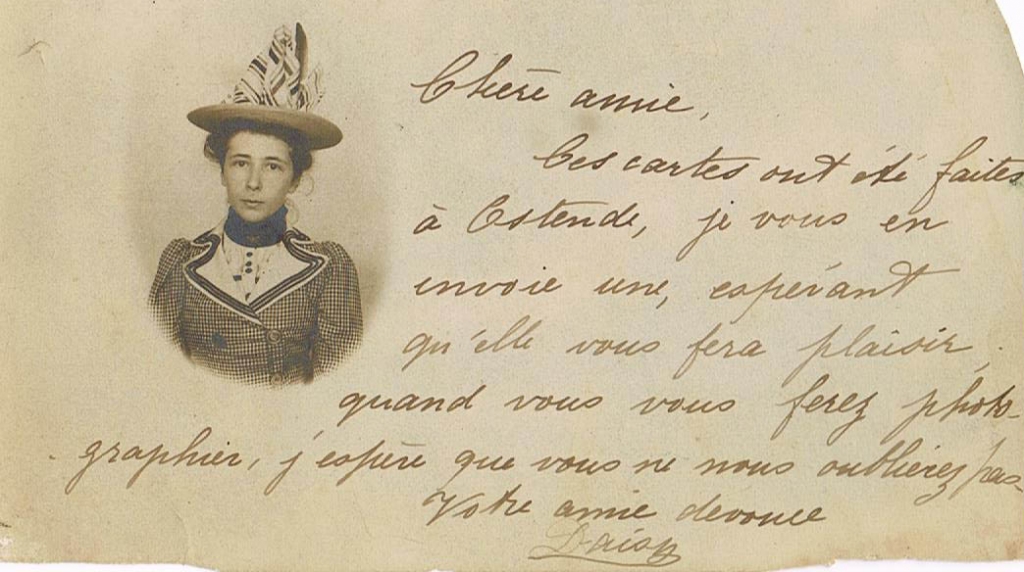 Chère amie,
Ces cartes ont été faites
à Ostende, je vous en
envoie une, espérant
qu'elle vous fera plaisir,
quand vous vous ferez photo-
graphier, j'espère que vous ne nous oublierez pas
Votre amie devouée
Daisy